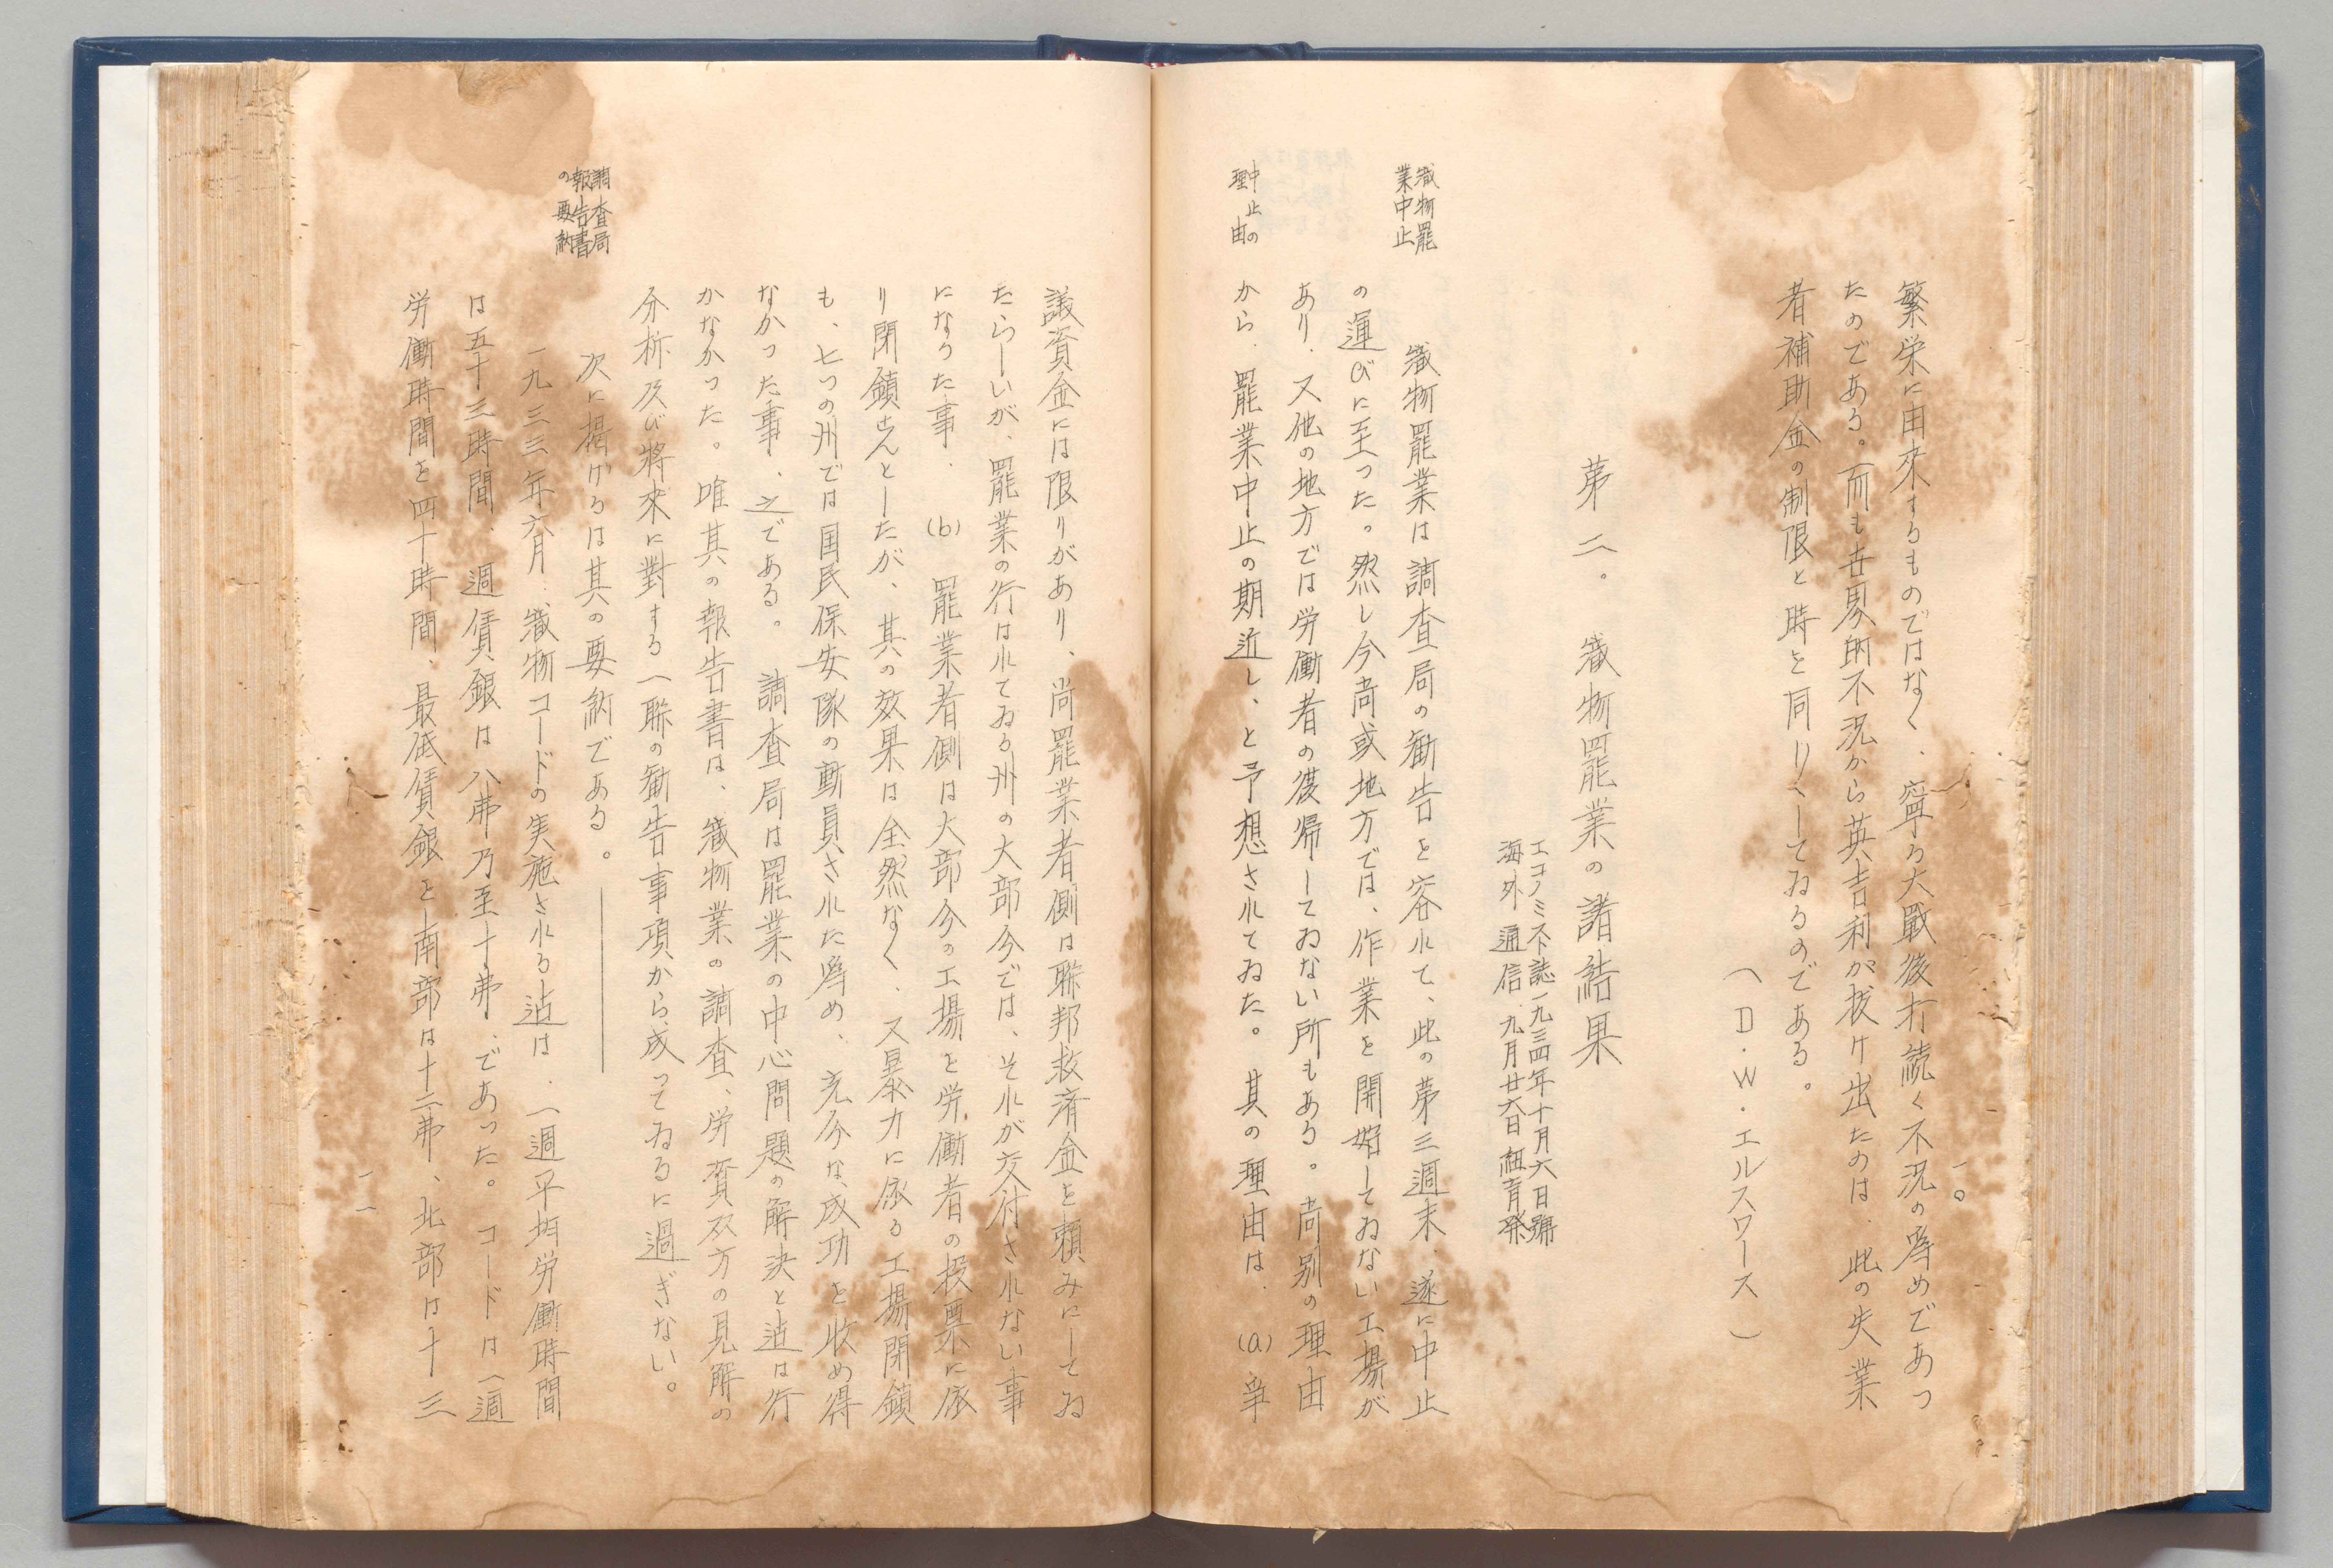 一〇
繁栄に由來するものではなく、寧ろ大戰後打続く不況の為めであつ
たのである。而も世界的不況から英吉利が抜け出たのは、此の失業
者補助金の制限と時を同じくしてゐるのである。
（D・W・エルスワース）
第二。　織物罷業の諸結果
エコノミスト誌一九三四年十月六日號
海外通信、九月廿六日紐育発
織物罷
業中止
織物罷業は調査局の勧告を容れて、此の第三週末、遂に中止
の運びに至つた。然し今尚或地方では、作業を開始してゐない工場が
あり、又他の地方では労働者の復帰してゐない所もある。尚別の理由
中止の
理由
から、罷業中止の期近し、と予想されてゐた。其の理由は、(a) 爭
議資金には限りがあり、尚罷業者側は聯邦救済金を頼みにしてゐ
たらしいが、罷業の行はれてゐる州の大部分では、それが交付されない事
になつた事、(b) 罷業者側は大部分の工場を労働者の投票に依
り閉鎖せんとしたが、其の効果は全然なく、又暴力に依る工場閉鎖
も、七つの州では国民保安隊の動員された為め、充分な成功を收め得
なかつた事、之である。調査局は罷業の中心問題の解決を迨は行
かなかつた。唯其の報告書は、織物業の調査、労資双方の見解の
分析及び將來に對する一聯の勧告事項から成つてゐるに過ぎない。
調査局
報告書
の要約
次に掲げるは其の要約である。
一九三三年六月、織物コードの実施される迨は、一週平均労働時間
は五十三時間、週賃銀は八弗乃至十弗、であつた。コードは一週
労働時間を四十時間、最低賃銀を南部は十二弗、北部は十三
一一